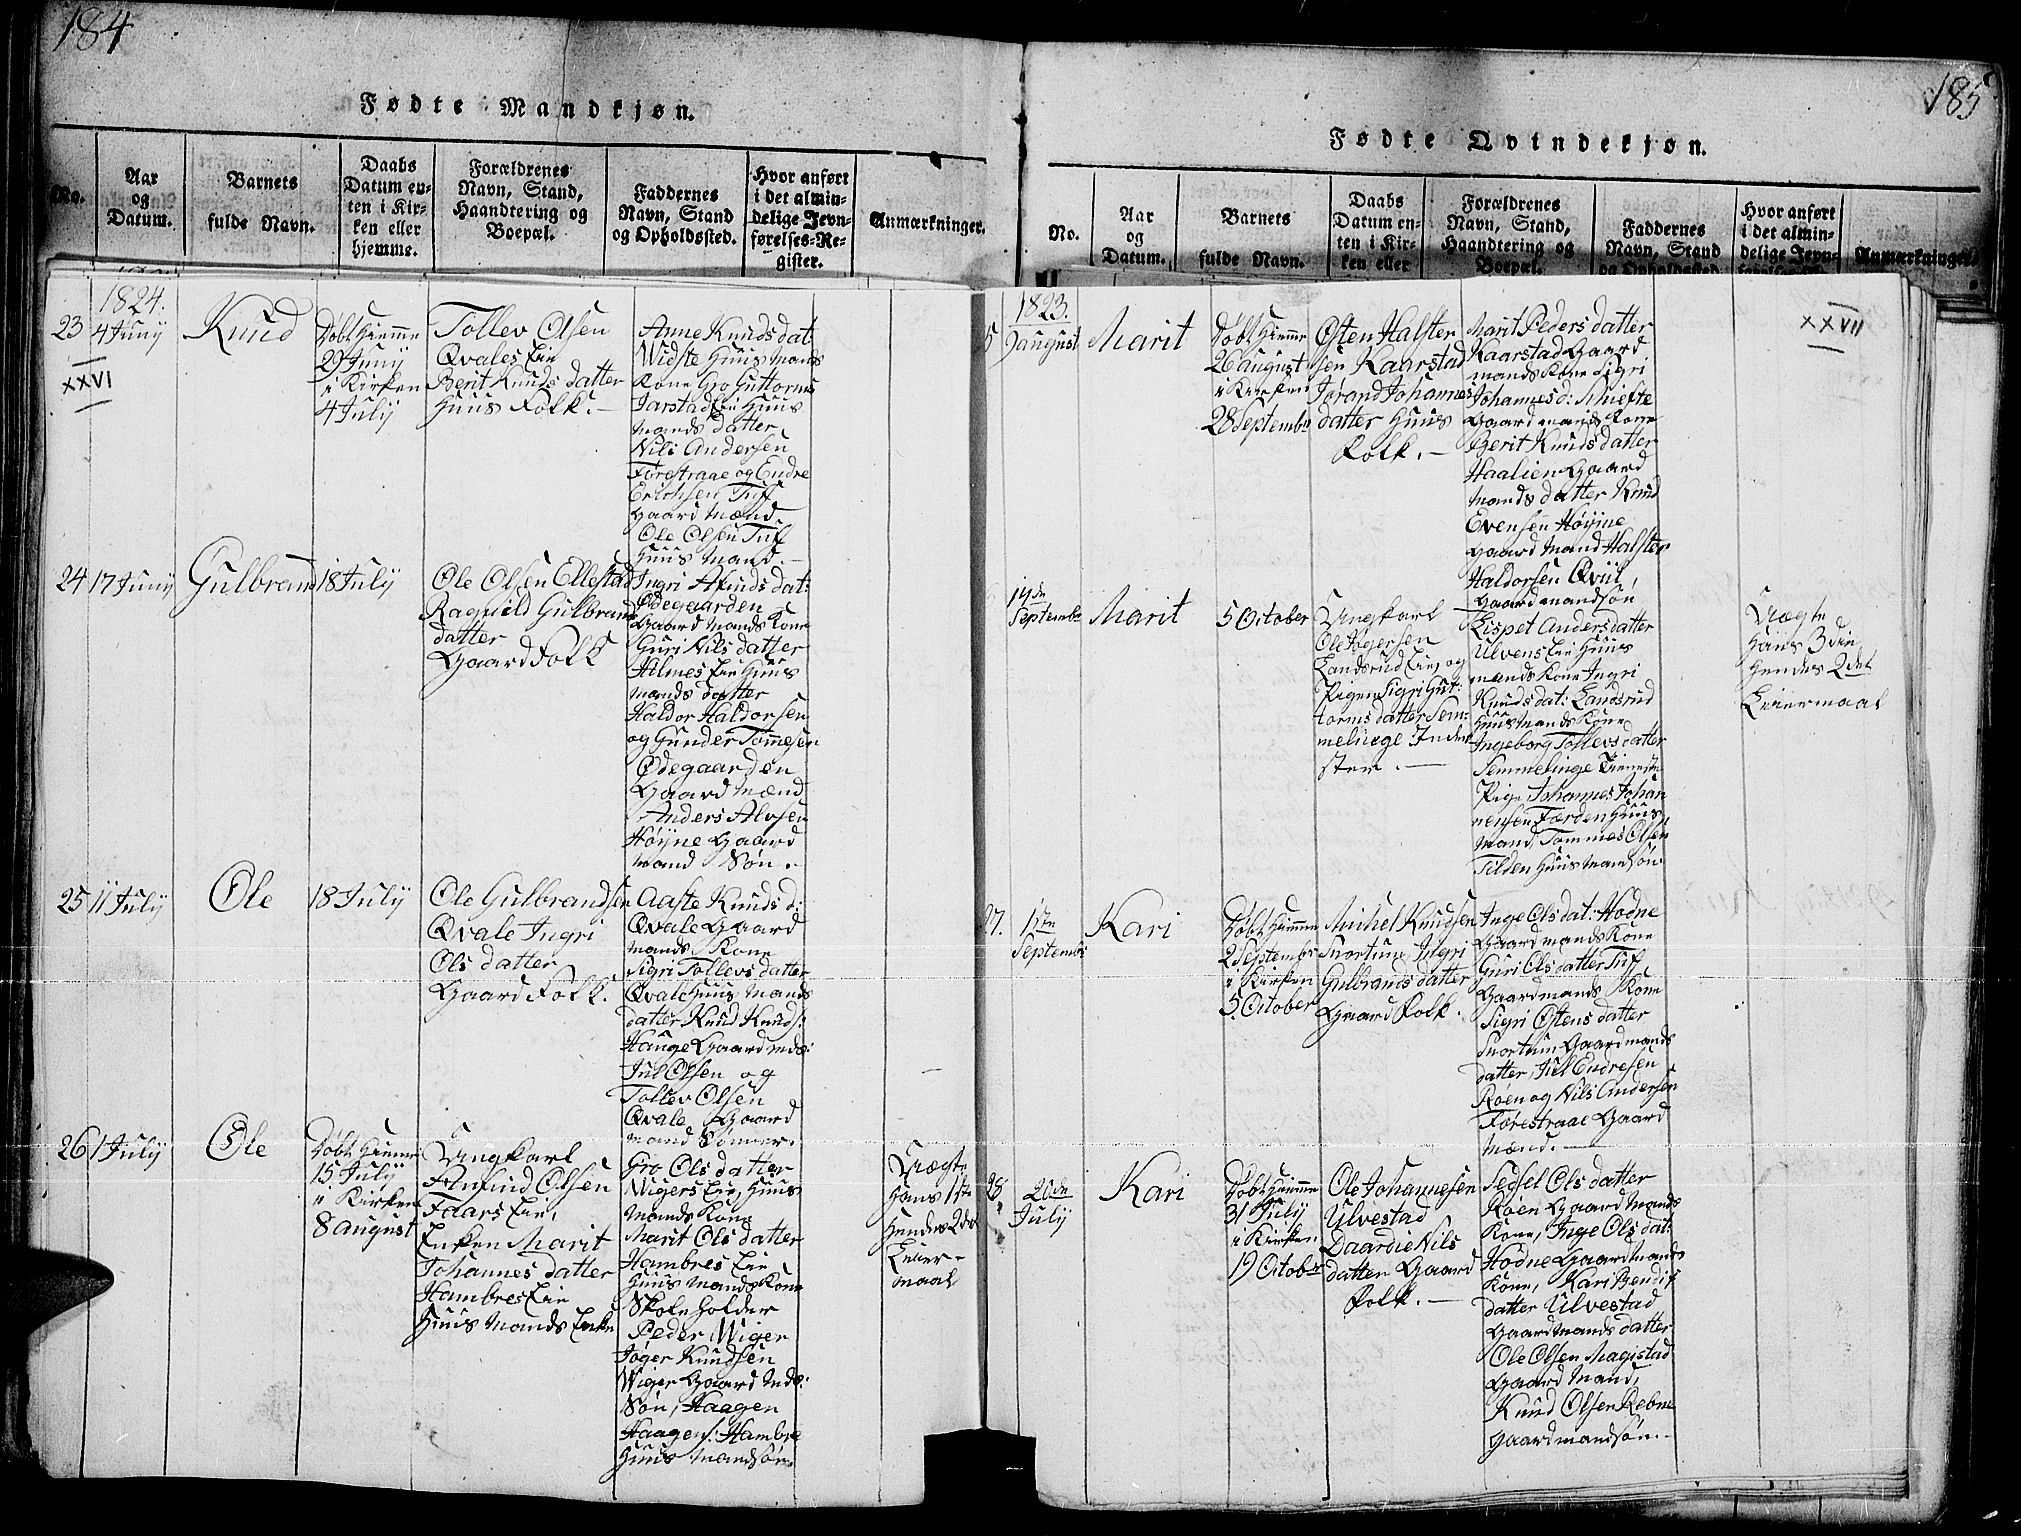 184
Fødte Mandkjøn.
No.
Aar
og
Datum.
Barnets
fulde Navn.
Daabs
Datum en-
ten i Kir-
ken eller
hjemme.
Forældrenes
Navn, Stand,
Haandtering og
Boepæl.
Faddernes
Navn, Stand
og Opholdssted.
Hvor anført
i det almin-
delige Jevn-
førelses-Re-
gister.
Anmærkninger.
1824.
23
4 Juny
XXVI
Knud
Døbt hiemme
29 Juny
i Kirken
4 July
Tollev Olsen
Qvales Eie
Berit Knuds datter
Huus Folk.-
Anne Knuds dat
Widste Huus Mands
Kone Gro Guttorms
Jarstad Eie Huus
mands datter
Nils Andersen
Forestraae og Endre
Erichsen Tuf
Gaard Mænd
Ole Olsen Tuf
Huus Mand -
24
17 Juny
Gulbrand
18 July
Ole Olsen Ellestad
Ragnild Gulbrand
datter
Gaard Folk
Ingri Amunds dat:
Ødegaarden
Gaard Mands Kone
Guri Nils datter
Halmes Eie Huus
mands datter
Haldor Haldorsen
og Gunder Tommesen
Ødegaarden
Gaard Mænd
Anders Alvsen
Høyne Gaard
mand Søn.
25
11 July
Ole
18 July
Ole Gulbrandsen
Qvale Ingri
Ols datter
Gaard Folk.
Aaste Knuds d:
Qvale Gaard
mands Kone
Sigri Tollevs datter
Qvale Huus Mands
datter Knud Knuds:
Hauge Gaard mds:
Jul Olsen og
Tollev Olsen
Qvale Gaard
mand Sønner.
26
1 July
Ole
Døbt hiemme
15 July
i Kirken
8 august
Ungkarl
Amund Olsen
Faars Eie,
Enken Marit
Johannes datter
Hambres Eie
Huus Mands Enke
Gro Ols datter
Wigers Eie, Huus
mands Kone
Marit Ols datter
Hambres Eie
Huus Mands Kone
Skoleholder
Peder Wiger
Jøger Knudsen
Wiger Gaard Mds:
Søn, Haagen
Haagens: Hambre
Huus mandsøn.
Uægte
Hans 1ste
Hendes 2det
Leier-
maal
185
Fødte Qvindekjøn.
No.
Aar
og
Datum.
Barnets
fulde Navn.
Daabs
Datum en-
ten i Kir-
ken eller
Forældrenes
Navn, Stand,
Haandtering og
Boepæl.
Faddernes
Navn, Stand
og Opholdssted.
Hvor anført
i det almin-
delige Jevn-
Anmærkninger.
1823.
XXVII
9 august
Marit
Døbt hiemme
26 august
i Kirken
28 Septembr
Østen Halster
sen Kaarstad
Jørand Johannes
datter Huus
Folk.-
Marit Peders datter
Kaarstad Gaard
mands Kone Sigri
Johannes d: Miefte
Gaard mands Kone
Berit Knuds datter
Haalien Gaard
Mands datter Knud
Evensen Høyne
Gaard Mand Halster
Haldorsen Qviil,
Gaard mandsøn
14de
Septembr
Marit
5 October
Ungkarl
Ole Jøgersen
Landsrud Eie, og
Pigen Sigri Gut:
torms datter Sem:
melenge Inder
ster.-
Lispet Anders datter
Ulvens Eie Huus
mands Kone Ingri
Knuds dat: Landsrud
Huus Mands Kone
Ingeborg Tollevs datter
Semmelinge Tieneste
Pige Johannes Johan
nesen Færden Huus
Mand, Tommes Olsen
Tilden Huus Mandsøn
Uægte
Hans 3die
Hendes 2det
Leiermaal
27.
1ste
Septembr
Kari
Døbt hiemme
2 Septembr
i Kirken
5 October
Michel Knudsen
Snortum Ingri
Gulbrands datter
Gaard Folk.
Inge Ols dat: Hodne
Gaard mands Kone
Guri Ols datter Tuf
Gaard mands Kone
Sigri Østens datter
Snortum Gaard mands
datter, Jul Endresen
Røen og Nils Andersen
Førestraae Gaard
Mænd.-
28
20de
July
Kari
Døbt hiemme
31 July
i Kirken
19 Octobr
Ole Johannesen
Ulvestad
Daardie Nils
datter Gaard
Folk.-
Sedsel Ols datter
Røen Gaard Mands
Kone, Inge Ols dat:
Hodne Gaard Mands
Kone, Kari Bendix
datter Ulvestad
Gaard Mands datter
Ole Olsen Magistad
Gaard Mand,
Knud Olsen Rebne
Gaard mandsøn.-